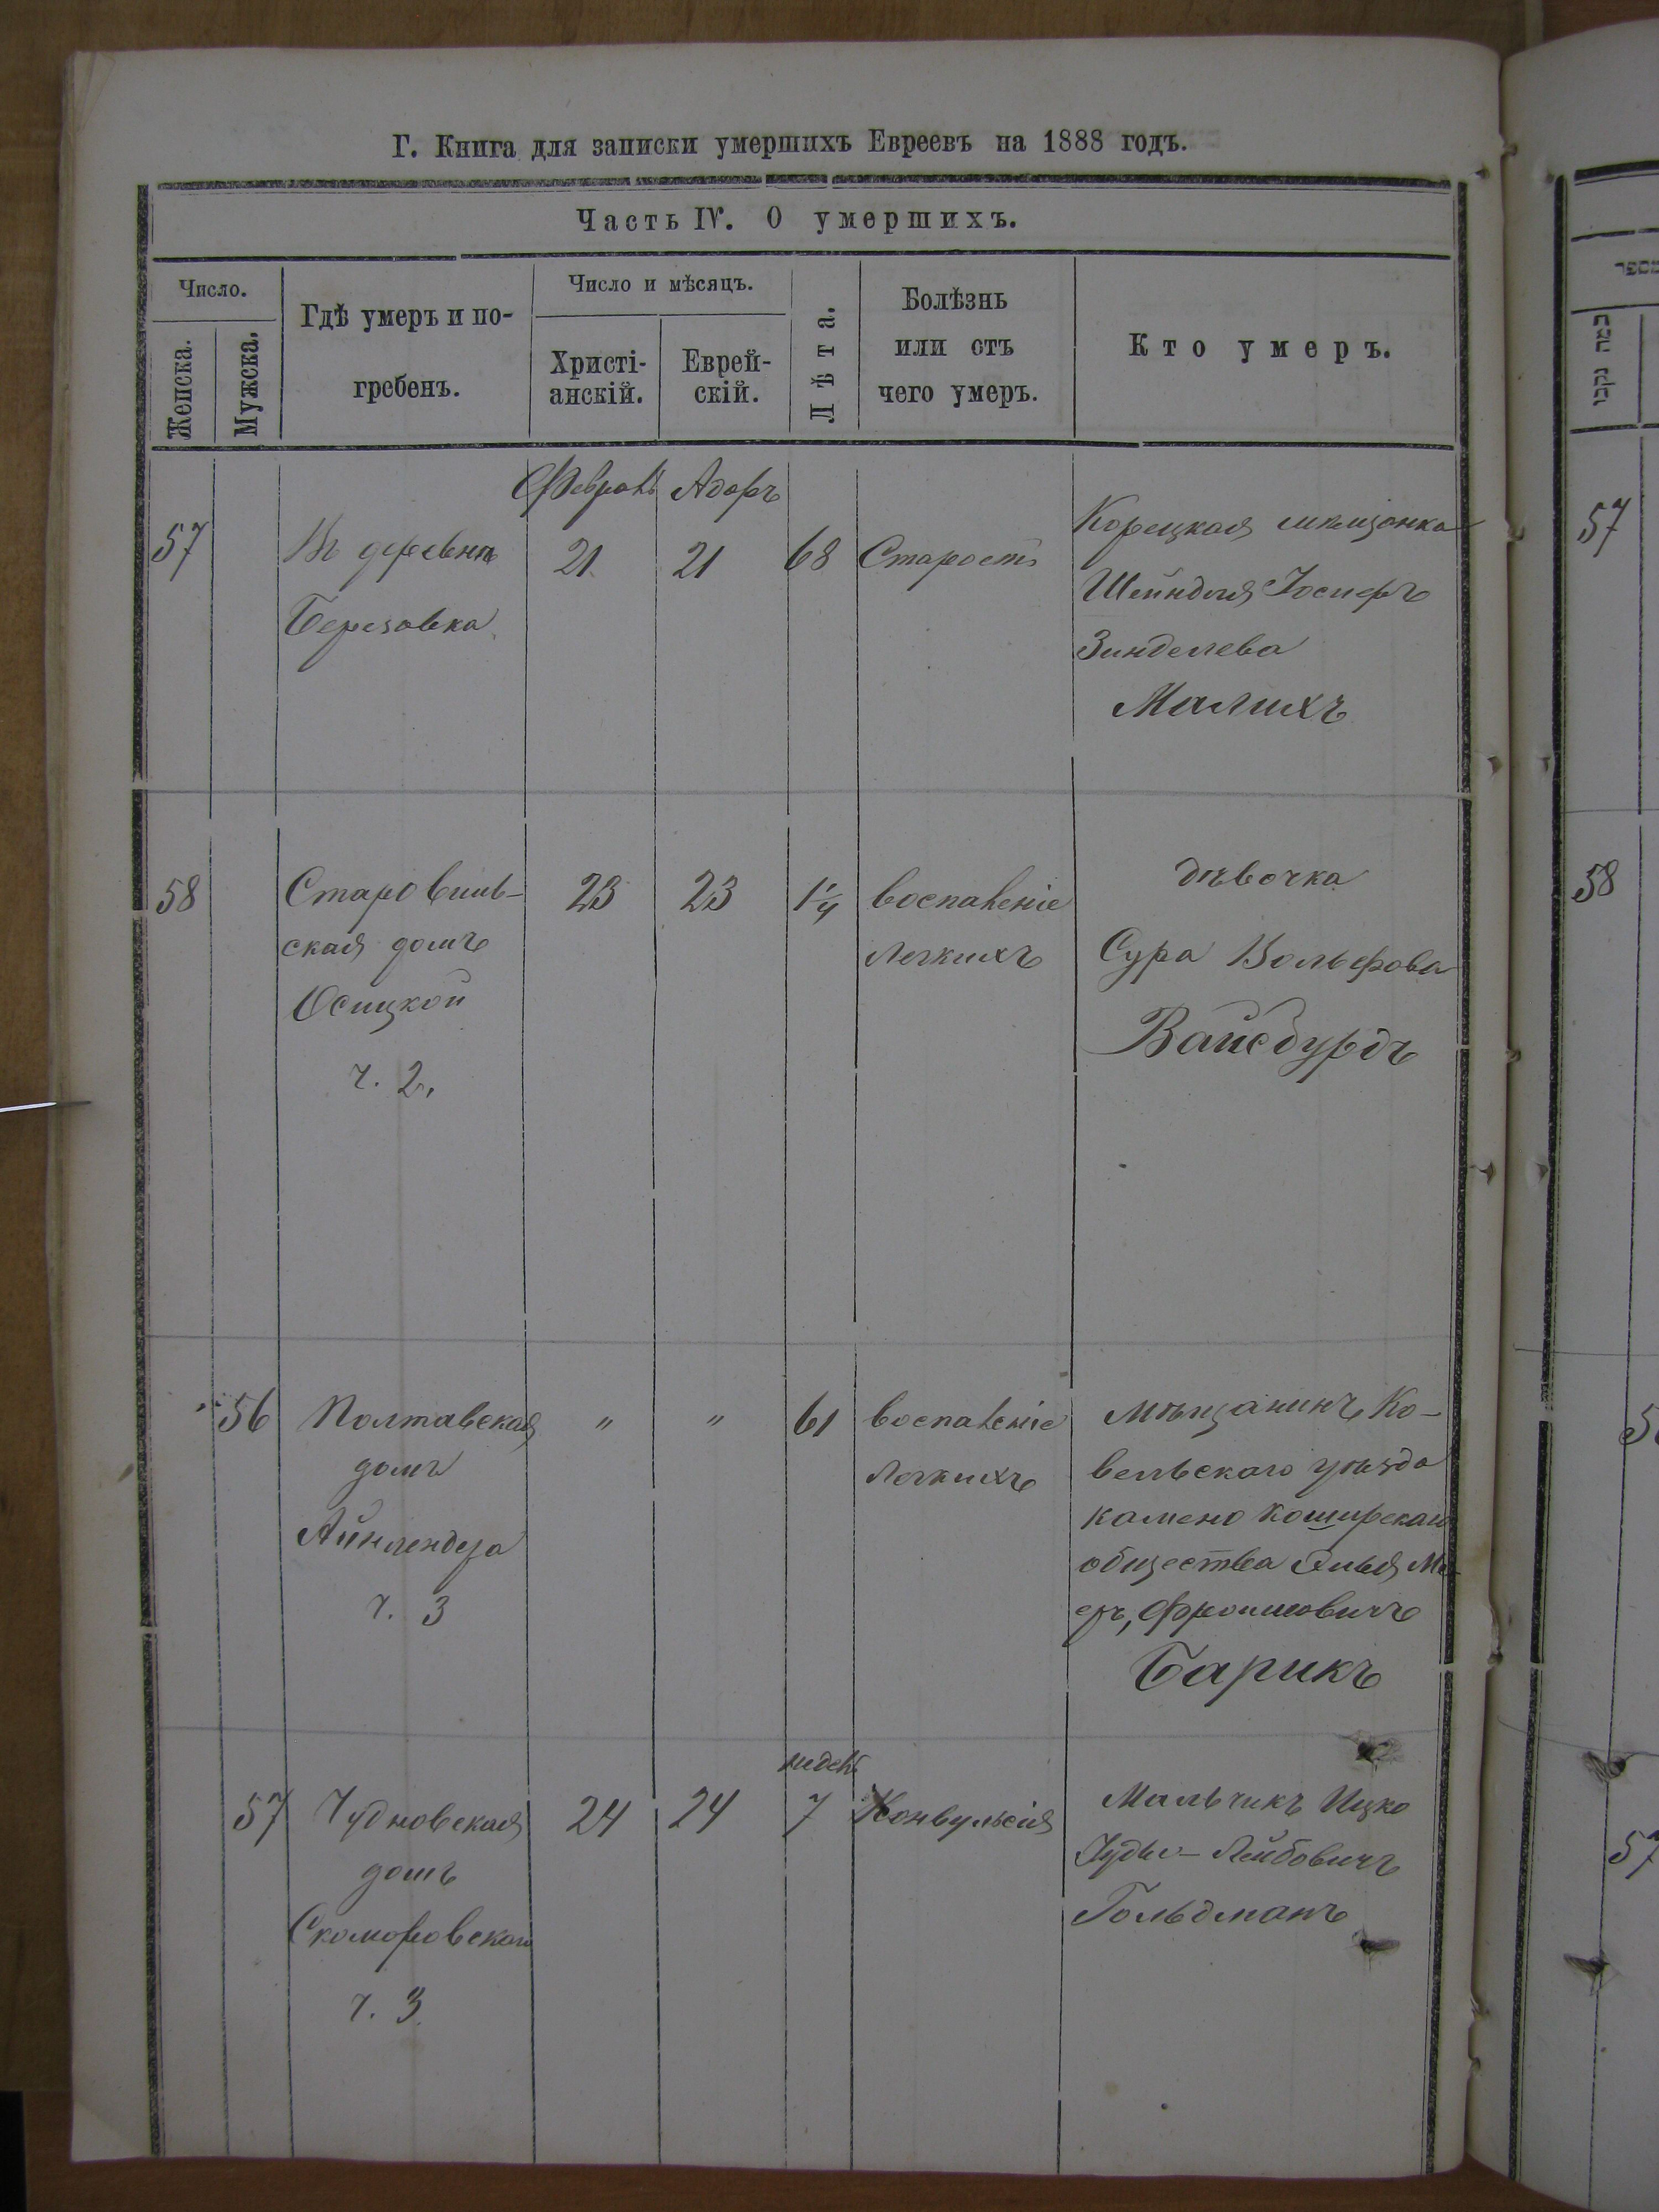 Г. Книга для записки умершихъ Евреевъ на 1888 годъ.
Часть IV. О умершихъ.
Число.
Женска.
Мужска.
Гдѣ умеръ и по-
гребенъ.
Число и мѣсяцъ.
Христі-
анскій.
Еврей-
скій.
Лѣта.
Болѣзнь
или отъ
чего умеръ.
Кто умеръ.
Февраль Адоръ
57
Въ деревнѣ
Березовка
21
21
68
Старость
Корецкая мѣщанка
Шейндля Іосиферъ
Зинделева
Малихъ
58
Старовиль-
ская домъ
Осицкой
ч. 2.
23
23
1 1/4
воспаленіе
легкихъ
дѣвочка
Сура Вольфова
Вайсбурдъ
56
Полтавская
домъ
Айнлендера
ч. 3
"
"
61
воспаленіе
легкихъ
мѣщанинъ Ко-
вельскаго уѣзда
камено Коширскаго
общества Элья Ме-
еръ, Фроимовичъ
Барикъ
57
Чудновская
домъ
Скоморовскаго
ч. 3
24
24
недель
7
Конвульсія
Мальчикъ Ицко
Іудко-Лейбовичъ
Гольдманъ
מספר
57
58
57